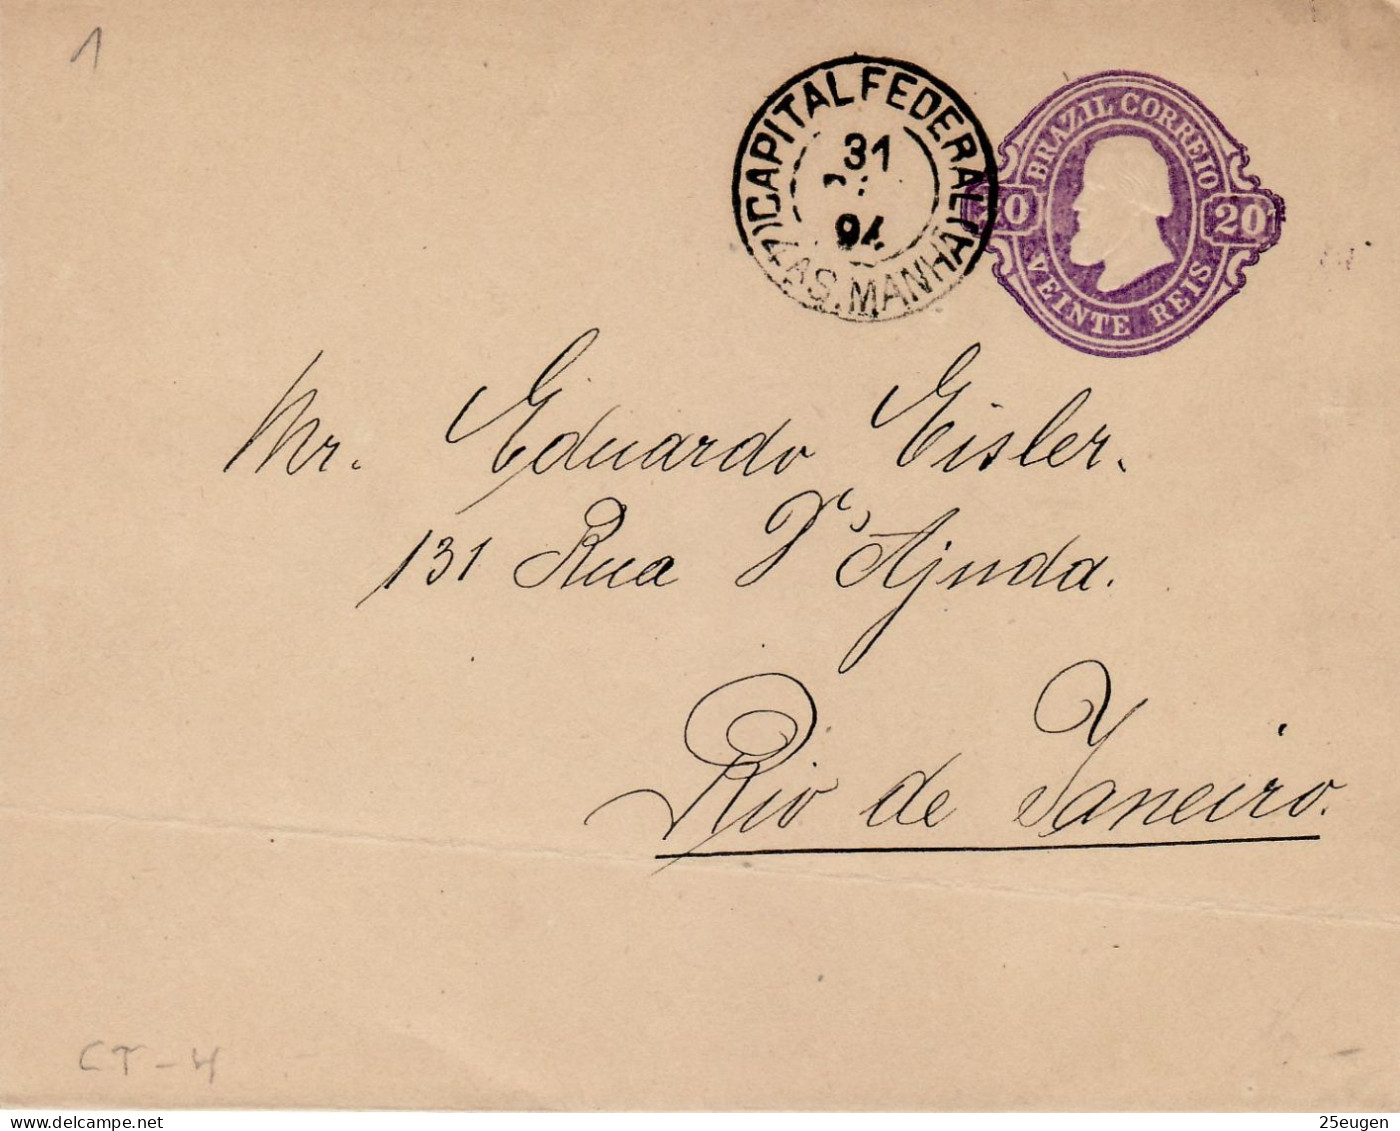 1
CAPITAL FEDERAL
31
94
4 AS. MANHÃ
BRAZIL CORREIO
20
20
VEINTE REIS
Mr. Eduardo Eisler.
131 Rua d'Ajuda.
Rio de Janeiro.
CT-4
www.delcampe.net
25eugen